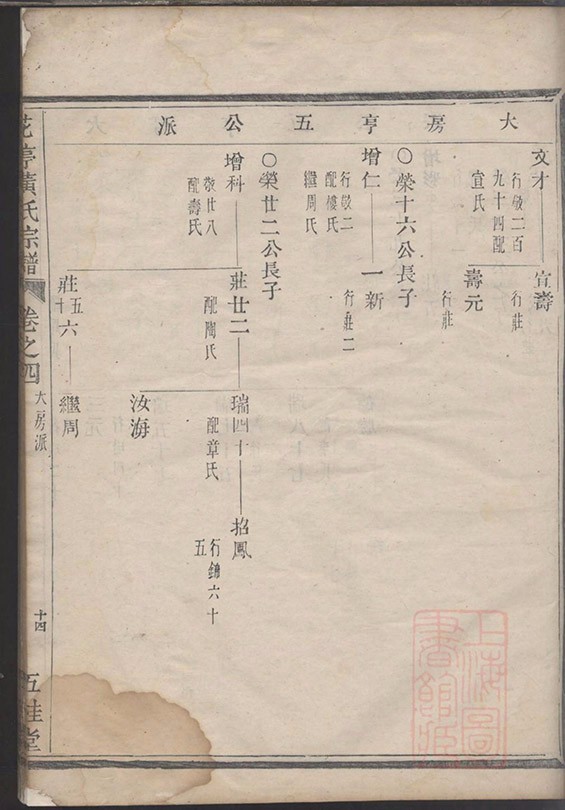 大房亨五公派
文才
行敬二百
九十四配
宣氏
宣壽
行莊
壽元
行莊
〇榮十六公長子
增仁
行敬二
配樓氏
繼周氏
一新
行莊二
〇榮廿二公長子
增科
敬廿八
配壽氏
莊廿二
配陶氏
瑞四十
配章氏
招鳳
行錦六十
五
汝海
莊五十六
繼周
花亭黃氏宗譜
卷之四
大房派
十四
五桂堂
上海圖
書館藏